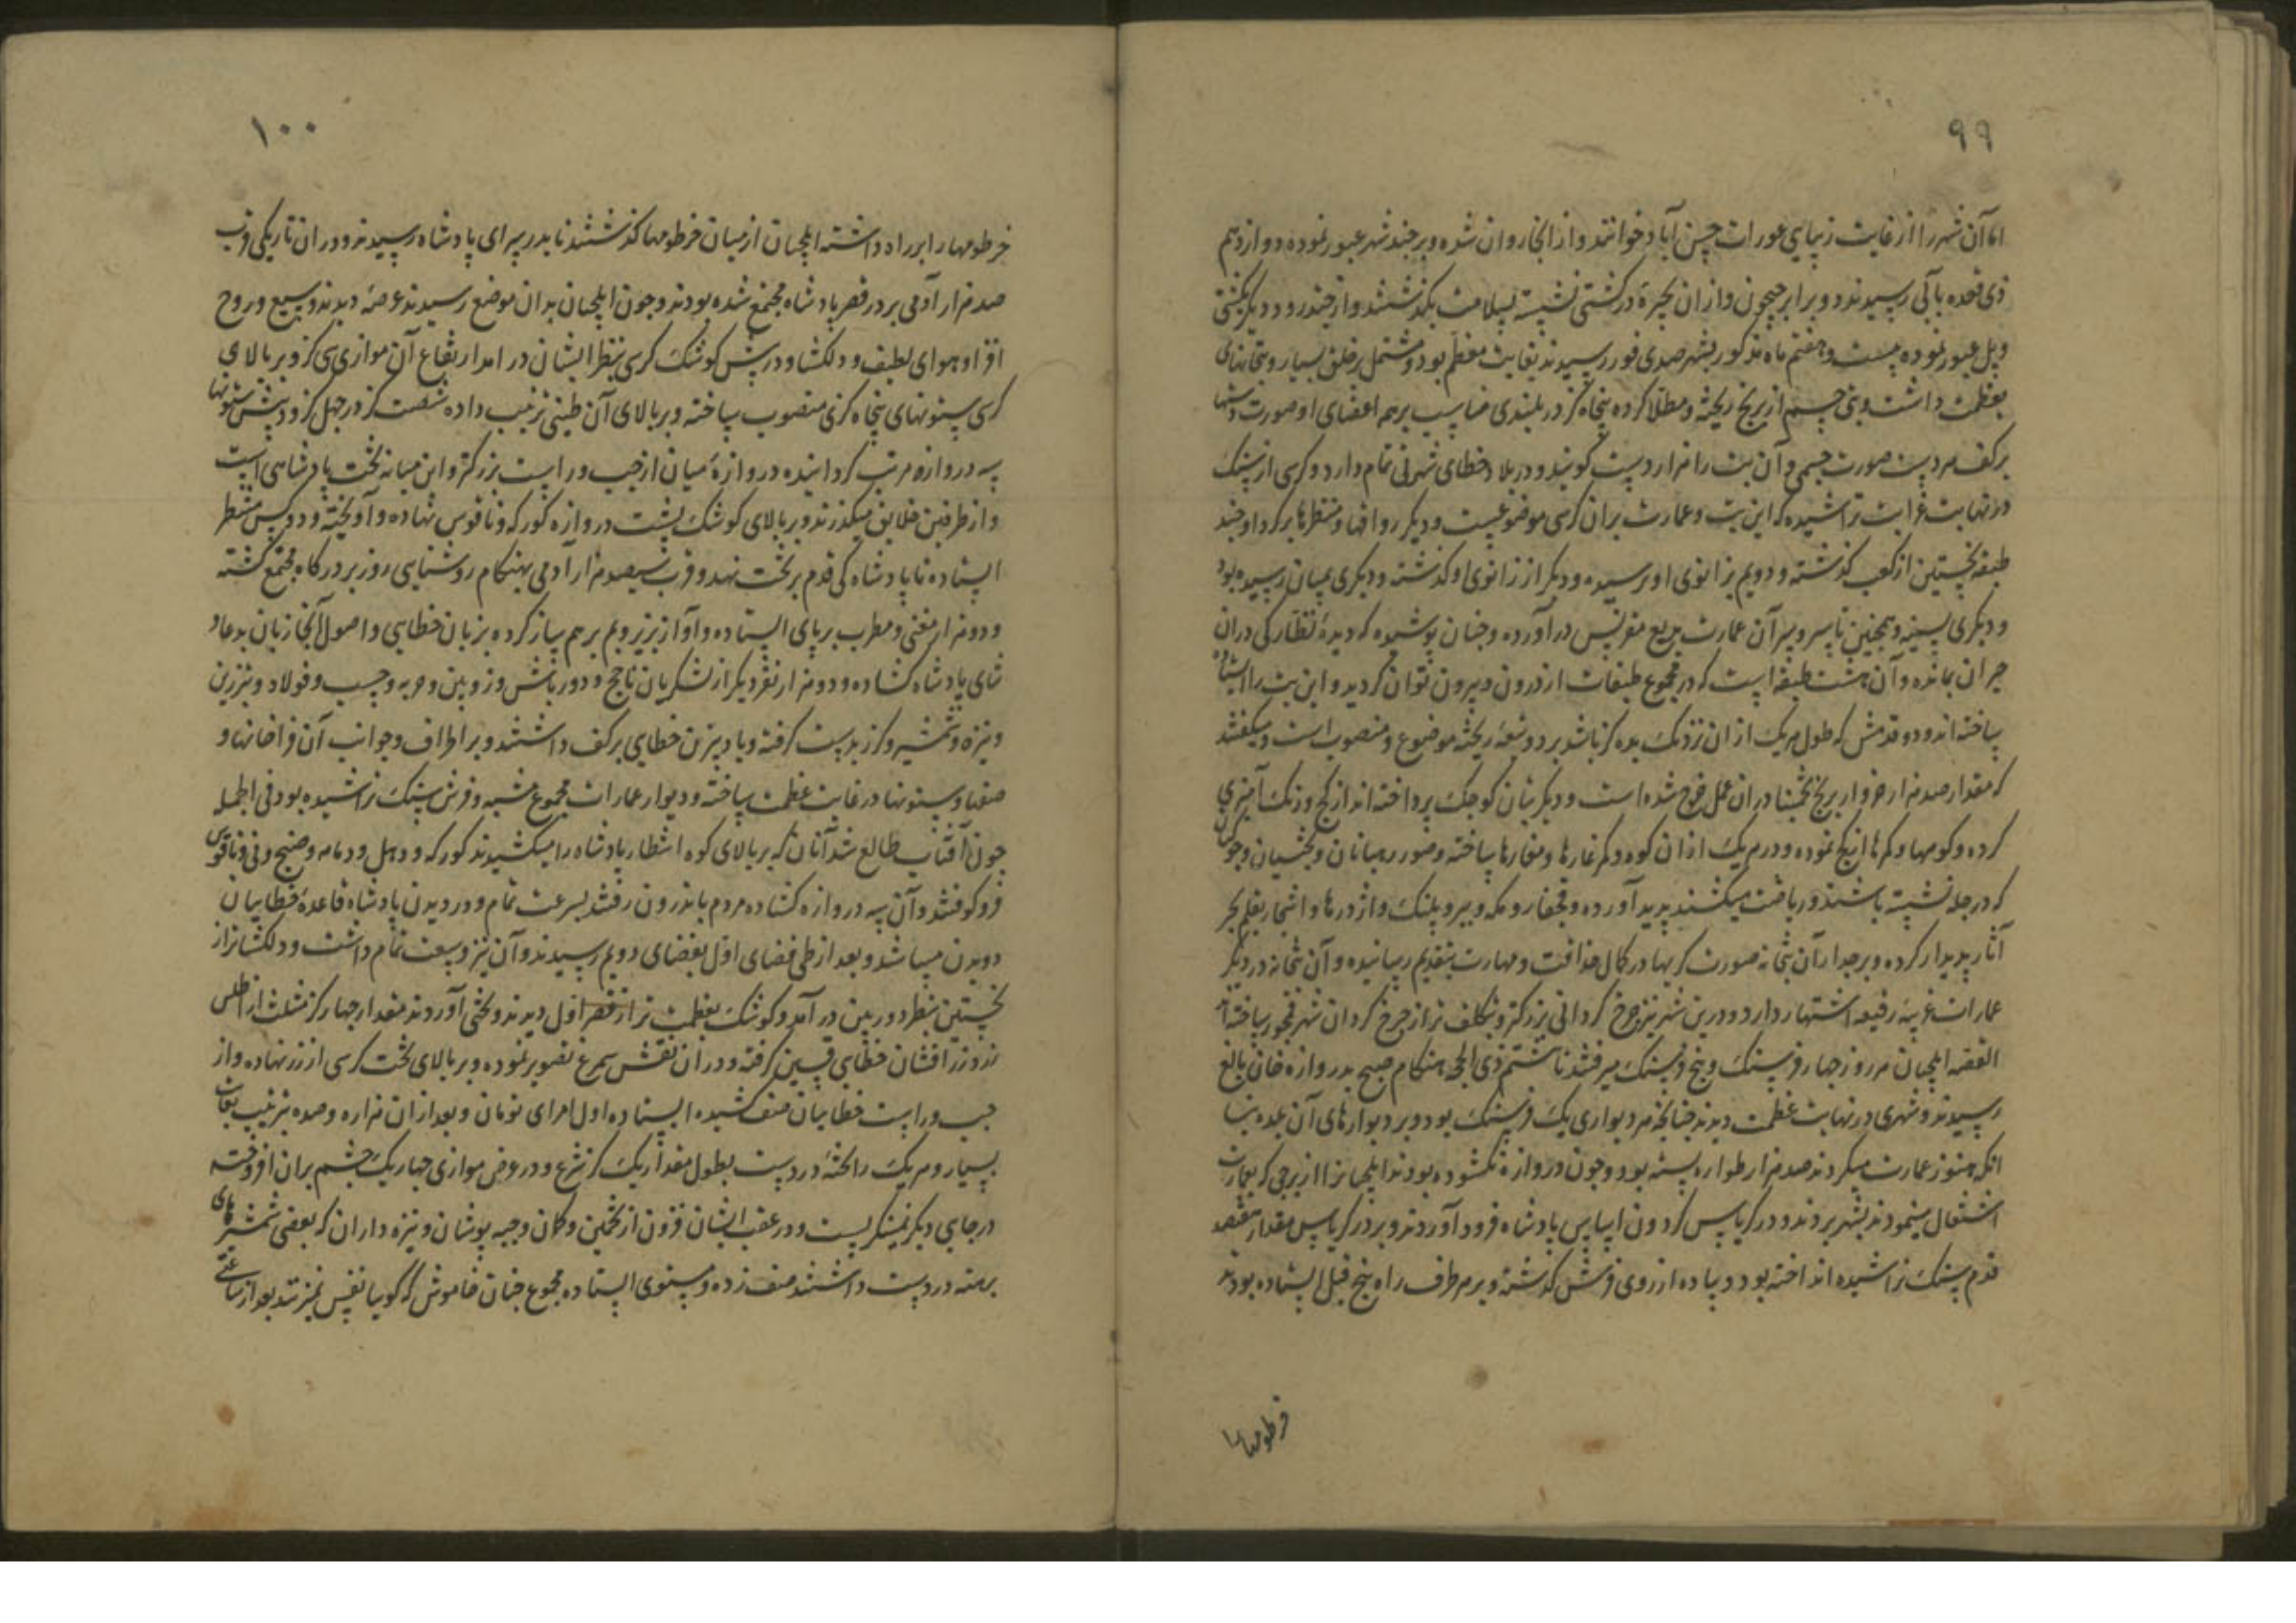 ۹۹
اما آن شهر را از غایت زیبایی عورات حسن آباد خوانند و از انجا روان شده و بر چند شهر عبور نموده دوازدهم
ذی قعده بآبی رسیدند دو برابر جیحون و ازان بحیره در کشتی نشسته بسلامت بگذشتند و از چند رود دیگر بکشتی
و پل عبور نموده بیست و هفتم ماه مذکور بشهر صدی فور رسیدند بغایت معظم بود و مشتمل بر خلق بسیار و بتخانهای
بعظمت داشت و بتی جسیم از برنج ریخته و مطلا کرده پنجاه گز در بلندی مناسب بر همه اعضای او صورت دستها
بر کف هر دست صورت چشمی و آن بت را هزار دست گویند و در بلاد خطای شهرتی تمام دارد و کرسی از سنگ
در نهایت غرابت تراشیده که این بت و عمارت بران کرسی موضوعست و دیگر رواقها و منظرها بر گرد او چند
طبقه نخستین از کعب گذشته و دویم بزانوی او نرسیده و دیگر از زانوی او گذشته و دیگری بمیان رسیده بود
و دیگری بسینه و همچنین تا سر و سر آن عمارت بدیع مقرنس در آورده و چنان پوشیده که دیده نظارگی دران
حیران بمانده و آن هشت طبقه است که در مجموع طبقات از درون و بیرون توان گردید و این بت را ایستاده
ساخته اند و دو قدمش که طول هر یک ازان نزدیک بده گز باشد بر دو ریخته موضوع و منصوب است و میگفتند
که مقدار صد هزار خروار برنج تخمینا دران عمل خرج شده است و دیگر بتان کوچک پرداخته اند از گچ و رنگ آمیزی
کرده و کوهها و کمرها از گچ نموده و در هر یک ازان کوه و کمر غارها و مغارها ساخته و صور رهبانان و بخشیان و جوکیان
که در چله نشسته باشند و ریاضت میکشند پدید آورده و قحقار و مکه و ببر و پلنگ و اژدرها و اشجار بقلم سحر
آثار پدیدار کرده و بر جدار آن بتخانه صورتگریها در کمال حذاقت و مهارت بتقدیم رسانیده و آن بتخانه در دیگر
عمارات غریبه رفیعه اشتهار دارد و درین شهر نیز چرخ گردانی بزرگتر و بتکلف تر از چرخ گردان شهر قمجو ساخته اند
القصه ایلچیان هر روز چهار فرسنگ و پنج فرسنگ میرفتند تا هشتم ذی الحجه هنگام صبح بدروازه خان بالغ
رسیدند و شهری در نهایت عظمت دیدند چنانچه هر دیواری یک فرسنگ بود و بر دیوارهای آن بلده بنا
انکه هنوز عمارت میکردند صد هزار طواره بسته بود و چون دروازه نگشوده بودند ایلچیانرا از برجی که بعمارت
اشتغال مینمودند بشهر بردند و در کریاس کردون اساس پادشاه فرود آوردند و بر در کریاس مقدار هفتصد
قدم سنگ تراشیده انداخته بود و پیاده از روی فرش گذشته و بر هر طرف راه پنج فیل ایستاده بودند
خرطومها
۱۰۰
خرطومها را بر راه داشته ایلچیان از میان خرطومها گذشتند تا بدر سرای پادشاه رسیدند و دران تاریکی قرب
صد هزار آدمی بر در قصر پادشاه مجتمع شده بودند و چون ایلچیان بدان موضع رسیدند عرصه دیدند وسیع و روح
افزا و هوای لطیف و دلکشا و در پیش کوشک کرسی بنظر ایشان در آمد ارتفاع آن موازی سی گز و بر بالای
کرسی ستونهای پنجاه گزی منصوب ساخته و بر بالای آن طنبی ترتیب داده شصت گز در چهل گز و در پیش ستونها
سه دروازه مرتب گردانیده دروازه میان از چپ و راست بزرگتر و این میانه تخت پادشاهی است
و از طرفین خلایق میگذرند و بر بالای کوشک پشت دروازه کورکه و ناقوس نهاده و آویخته و دو کس منتظر
ایستاده تا پادشاه کی قدم بر تخت نهد و قرب سیصد هزار آدمی بهنگام روشنایی روز بر درگاه مجتمع گشته
و دو هزار مغنی و مطرب بر پای ایستاده و آواز بزیر و بم بر هم ساز کرده بزبان خطایی و اصول آنجا زبان بدعا و
ثنای پادشاه گشاده و دو هزار نفر دیگر از لشکریان ناچخ و دورباش و زوبین و حربه و چسب و فولاد و تبرزین
و نیزه و شمشیر و گرز بدست گرفته و بادبیزن خطایی بر کف داشتند و بر اطراف و جوانب آن فراخ خانها و
صفها و ستونها در غایت عظمت ساخته و دیوار عمارات مجموع مشبه و فرش سنگ تراشیده بود فی الجمله
چون آفتاب طالع شد آنان که بر بالای کوه انتظار پادشاه را میکشیدند کورکه و دهل و دمامه و صنج و نی و ناقوس
فرو کوفتند و آن سه دروازه گشاده مردم باندرون رفتند بسرعت تمام و در دیدن پادشاه قاعده خطاییان
دویدن میباشد و بعد از طی فضای اول بفضای دویم رسیدند و آن نیز وسعت تمام داشت و دلکشاتر از
نخستین بنظر دوربین در آمد و کوشک بعظمت تر از قصر اول دیدند و تختی آوردند مقدار چهار گز مثلث از اطلس
زرد زرافشان خطایی گرفته و دران نقش سیمرغ تصویر نموده و بر بالای تخت کرسی از زر نهاده و از
چپ و راست خطاییان صف کشیده ایستاده اول امرای تومان و بعد ازان هزاره و صده بترتیب بغایت
بسیار و هر یک را تخته در دست بطول مقدار یک گز شرع و در عرض موازی چهار یک چشم بران افروخته
در جایی دیگر نمینگریست و در عقب ایشان فزون از تخمین و گمان و جبه پوشان و نیزه داران که بعضی شمشیرهای
برهنه در دست داشتند صف زده و مستوی ایستاده مجموع چنان خاموش که گویا نفس نمیزنند بعد از ساعتی